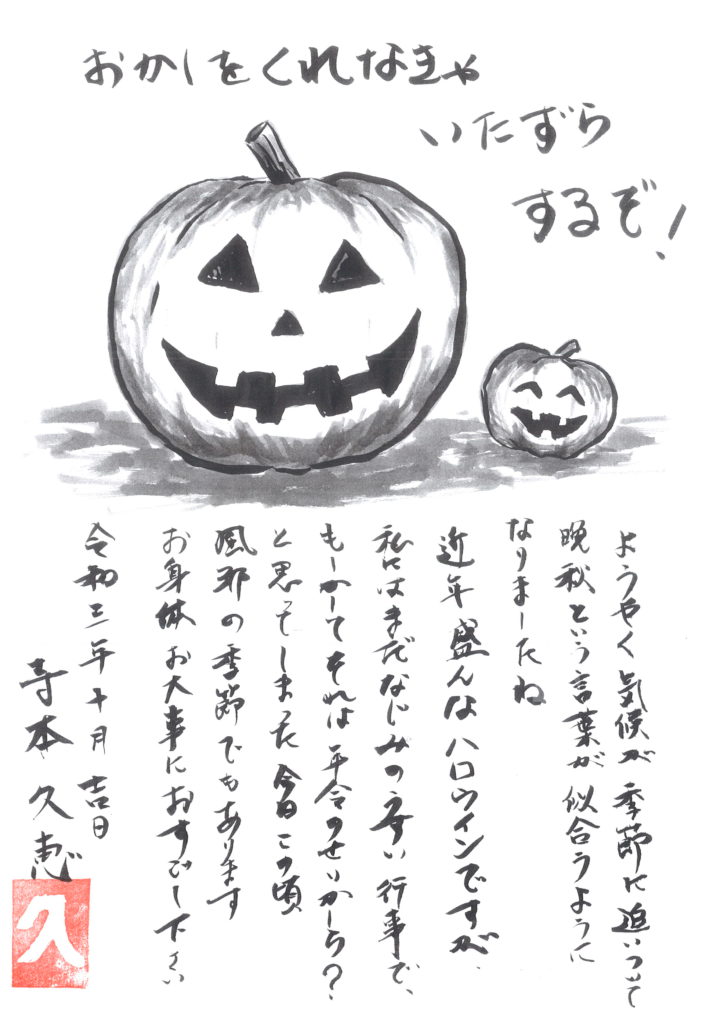 おかしをくれなきゃ
いたずら
するぞ!
ようやく気候が季節に追いついて
晩秋という言葉が似合うように
なりましたね
近年盛んなハロウィンですが、
私にはまだなじみのうすい行事で、
もしかしてそれは年令のせいかしら?
と思ってしまった今日この頃
風邪の季節でもあります
お身体お大事におすごし下さい
令和三年十月吉日
寺本久恵
久